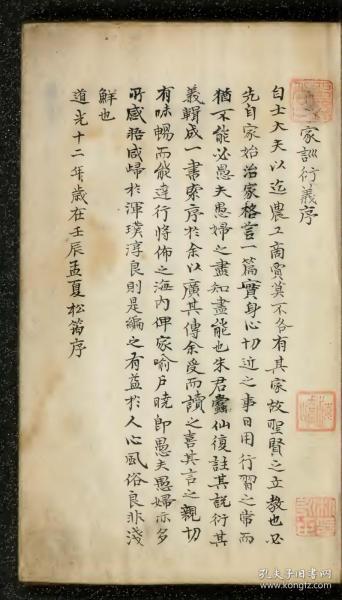 家訓衍義序
自士大夫以迄農工商賈莫不各有其家故聖賢之立教也必
先自家始治家格言一篇實身心切近之事日用行習之常而
猶不能必愚夫愚婦之盡知盡能也朱君仙復註其說衍其
義輯成一書索序於余以廣其傳余受而讀之喜其言之親切
有味暢而能達行將佈之海內俾家喻戶曉即愚夫愚婦亦多
所感悟咸歸於渾璞淳良則是編之有益於人心風俗良非淺
鮮也
道光十二年歲在壬辰孟夏松筠序
孔夫子旧书网